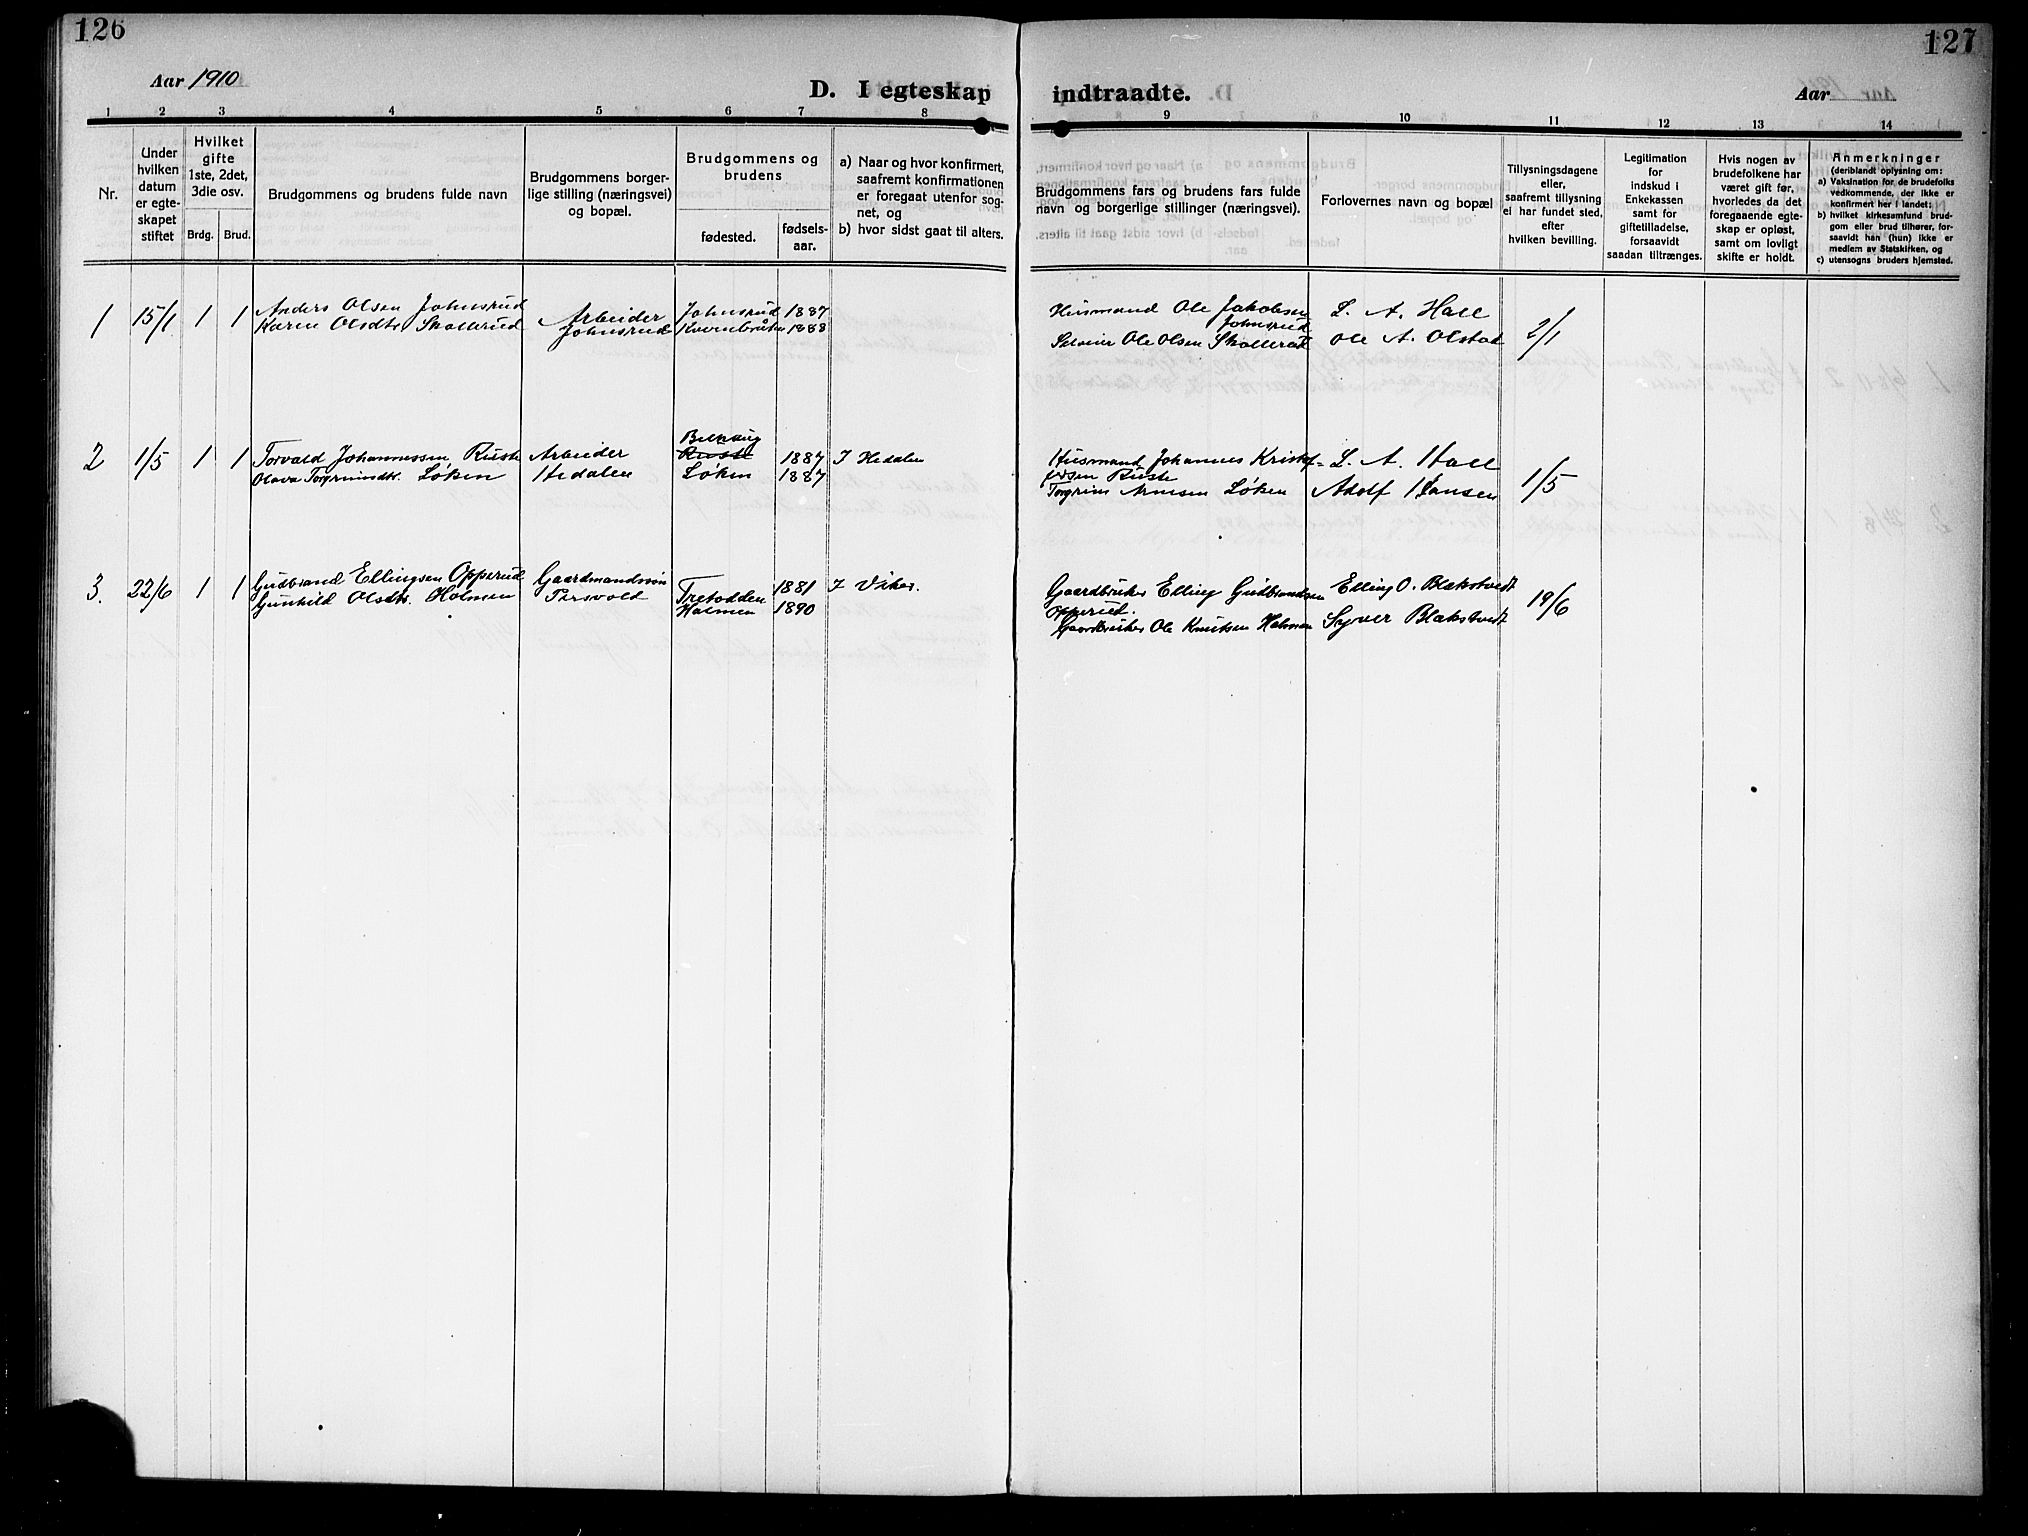 126
Aar 1910
D. I egteskap
1 2 3 4 5 6 7 8
Nr.
Under hvilken datum er egteskapet stiftet
Hvilket gifte 1ste, 2det, 3die osv.
Brdg. Brud.
Brudgommens og brudens fulde navn
Brudgommens borgerlige stilling (næringsvei) og bopæl.
Brudgommens og brudens
fødested.
fødselsaar.
a) Naar og hvor konfirmert, saafremt konfirmationen er foregaat utenfor sognet, og
b) hvor sidst gaat til alters.
1 15/1 1 1 Anders Olsen Johnsrud Arbeider Johnsrud 1887
Karen Olsdtr Skollerud Johnsrud 1888
2 1/5 1 1 Torvald Johannessen Ruste Arbeider Ruste 1887 I Hedalen
Olava Torgrimsdtr. Løken Hedalen Løken 1887
3. 22/6 1 1 Gudbrand Ellingsen Opperud Gaardmandssøn Tretodden 1881 I Viker.
Gunhild Olsdtr. Holmen Persvold Holmen 1890
127
indtraadte.
Aar
9 10 11 12 13 14
Brudgommens fars og brudens fars fulde navn og borgerlige stillinger (næringsvei).
Forlovernes navn og bopæl
Tillysningsdagene eller, saafremt tillysning ei har fundet sled, efter hvilken bevilling.
Legitimation for indskud i Enkekassen samt for giftetilladelse, forsaavidt saadan tiltrænges.
Hvis nogen av brudefolkene har været gift før, hvorledes da det foregaaende egteskap er opløst, samt om lovligt skifte er holdt.
Anmerkninger (deriblandt oplysning om:
a) Vaksination for de brudefolks vedkommende, der ikke er konfirmert her i landet;
b) hvilket kirkesamfund brudgom eller brud tilhører, forsaavidt han (hun) ikke er medlem av Statskirken, og
c) utensogns bruders hjemsted.
Husmand Ole Jakobsen Johnsrud L. A. Hall 2/1
Ole Olsen Skollerud Ole A. Olstad
Husmand Johannes Kristoffersen Ruste L. A. Hall 1/5
Torgrim Arnesen Løken Adolf Hansen
Gaardbruker Elling Gudbrandsen Opperud. Elling O. Blakstvedt 19/6
Gaardbruker Ole Knutsen Holmen Syver Blakstvedt